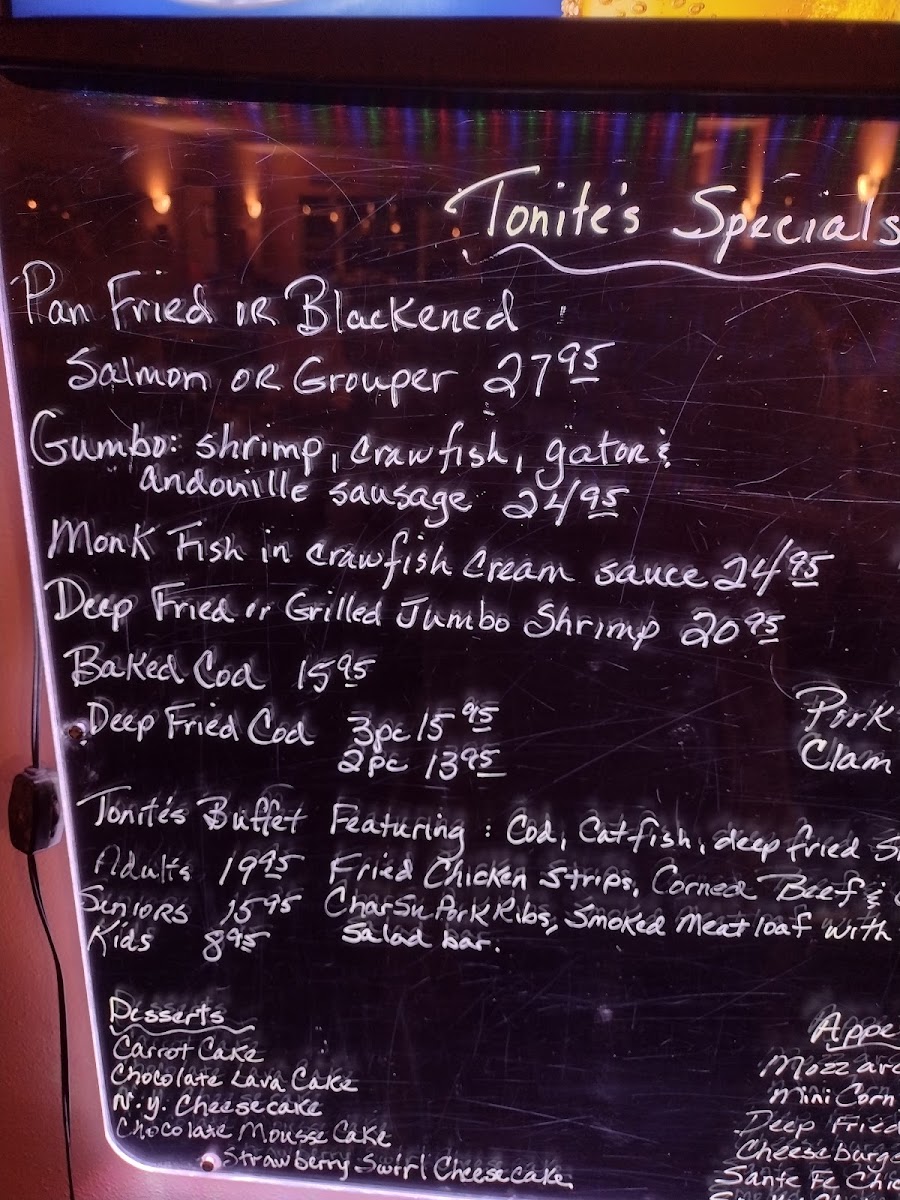 Tonite's Specials
Pan Fried OR Blackened
Salmon OR Grouper 27 95
Gumbo: shrimp, crawfish, gator &
andouille sausage 24 95
Monk Fish in crawfish cream sauce 24 95
Deep Fried or Grilled Jumbo Shrimp 20 95
Baked Cod 15 95
Deep Fried Cod 3pc 15 95
2pc 13 95
Pork
Clam
Tonite's Buffet Featuring: Cod, Catfish, deep fried
Adults 19 95 Fried Chicken Strips, Corned Beef &
Seniors 15 95 Char Su Pork Ribs, Smoked Meatloaf with
Kids 8 95 Salad bar.
Desserts
Carrot Cake
Chocolate Lava Cake
N.Y. Cheesecake
Chocolate Mousse Cake
Strawberry Swirl Cheesecake
Appe
Mozzar
Mini Corn
Deep Fried
Cheeseburge
Sante Fe Chic